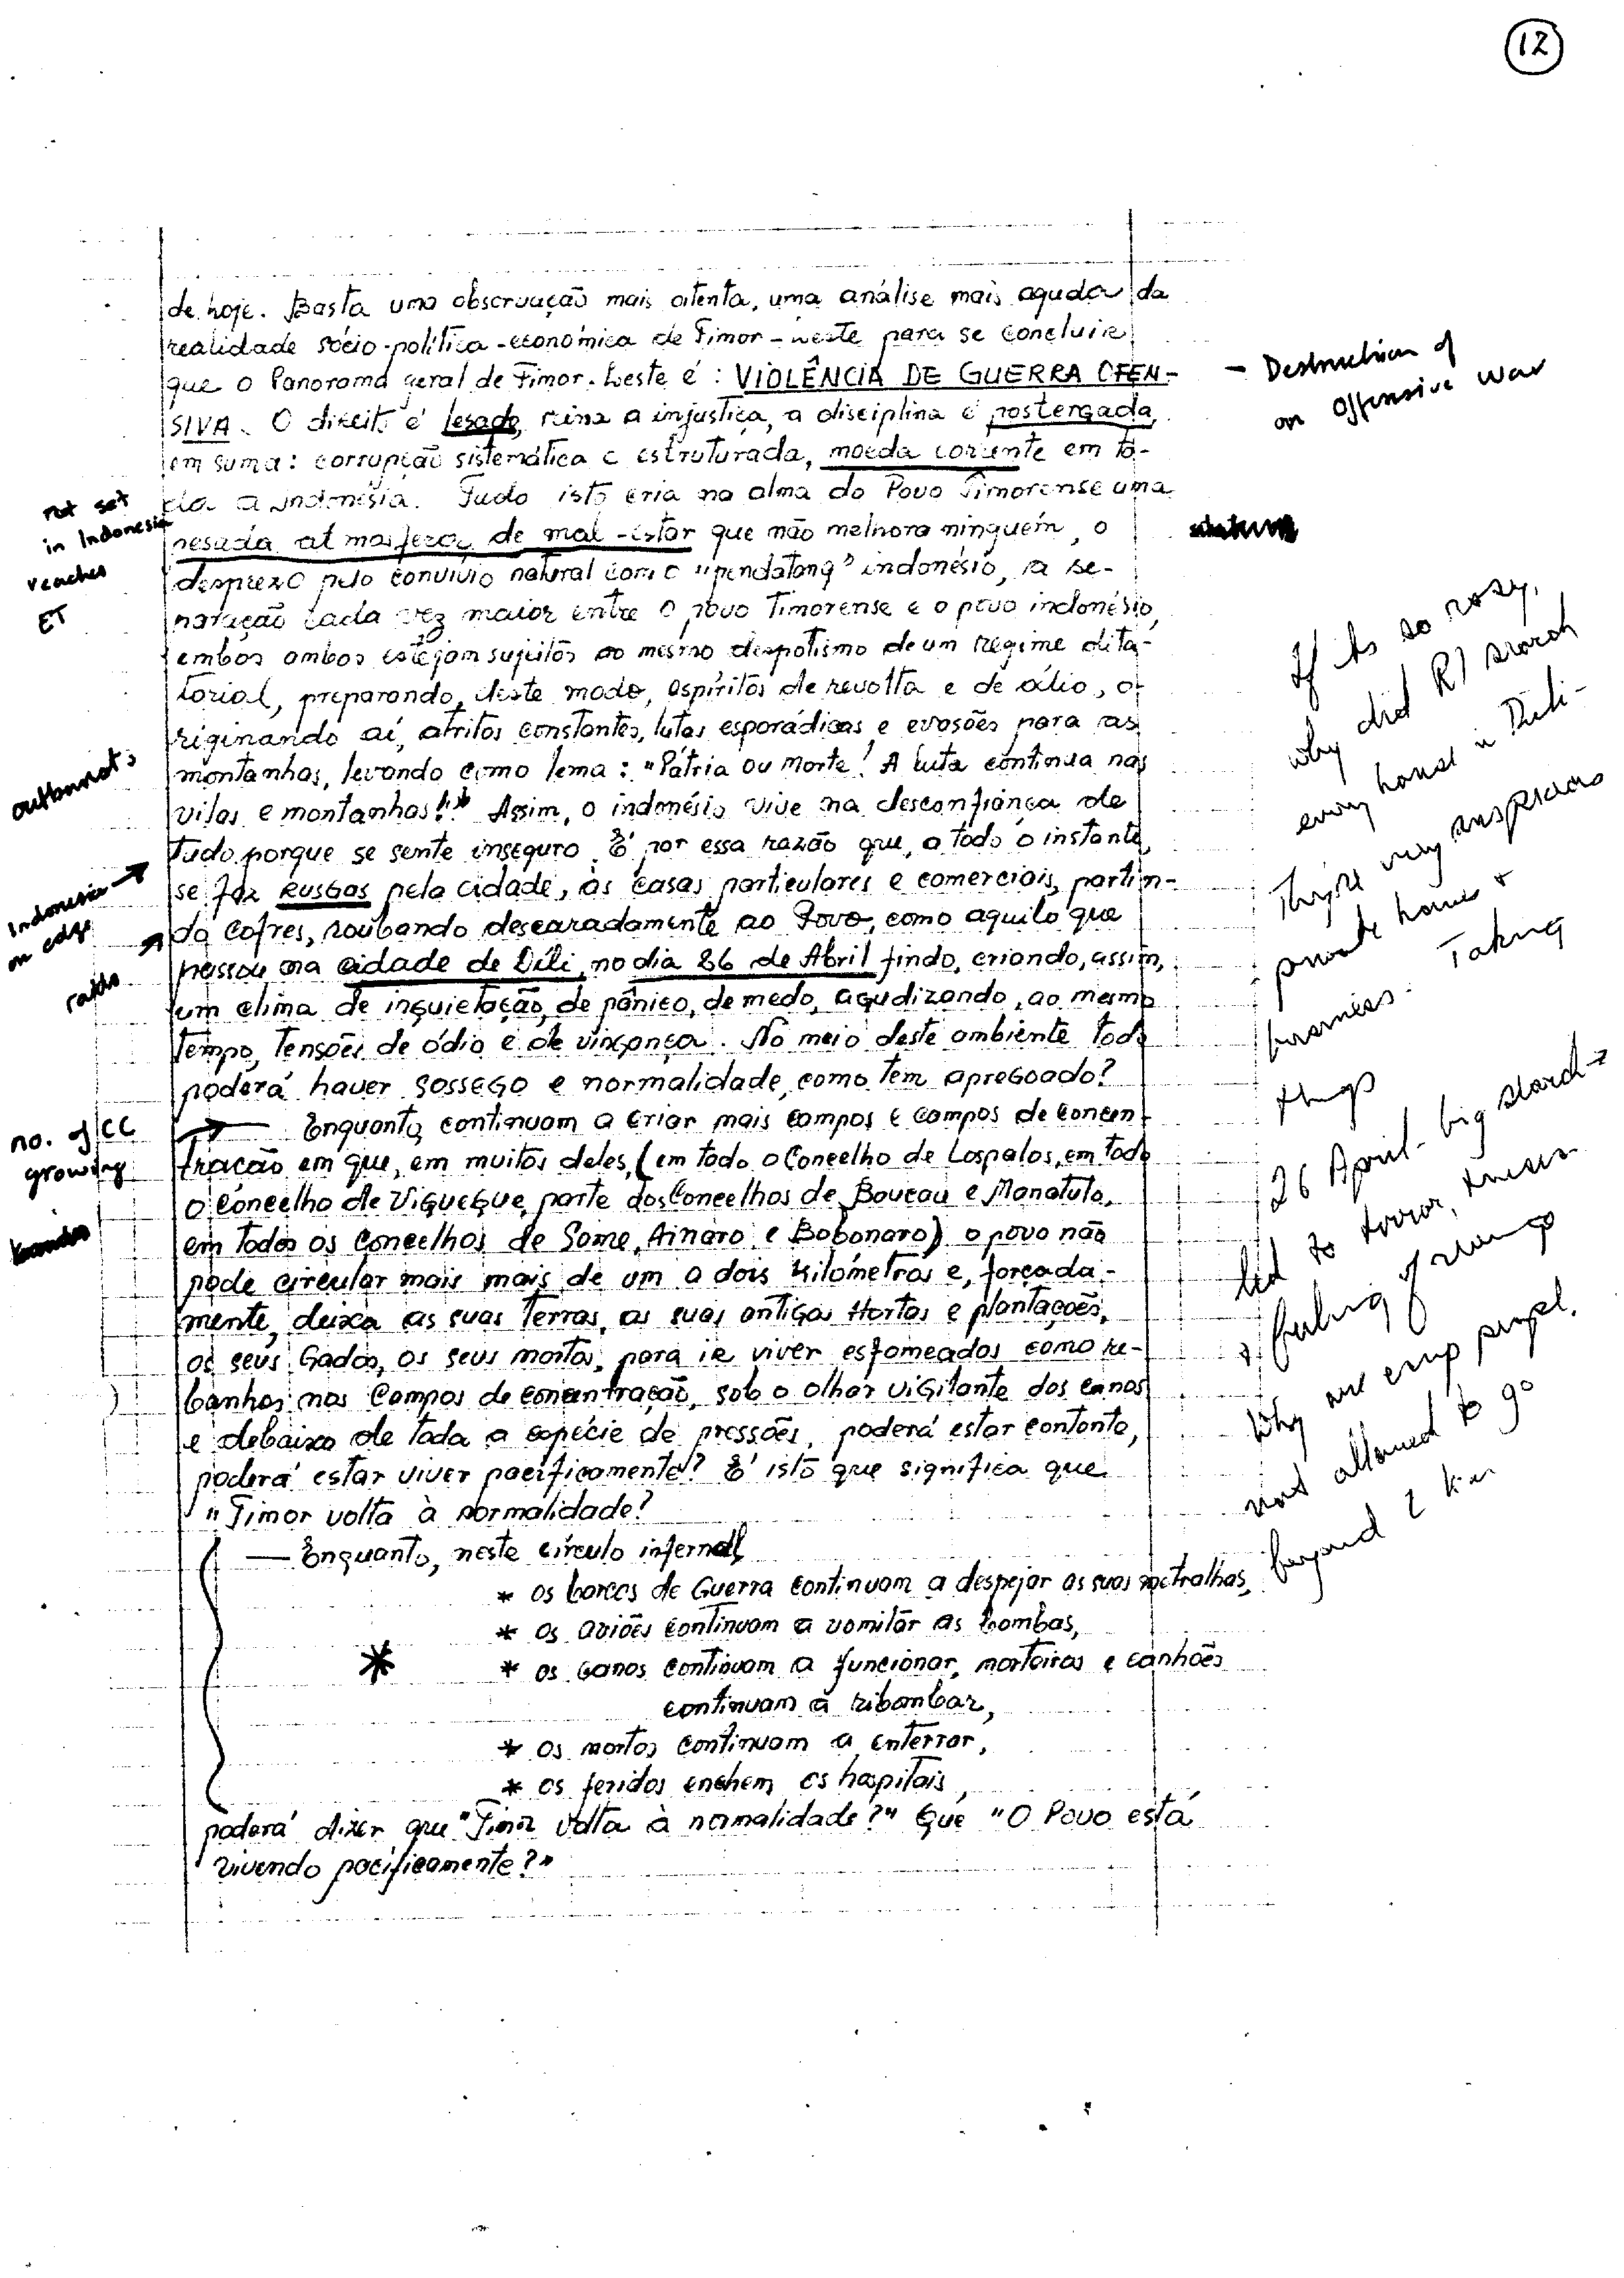 12
de hoje. Basta uma observação mais atenta, uma análise mais aguda da
realidade sócio-política-económica de Timor-Leste para se concluir
que o Panorama geral de Timor-Leste é: VIOLÊNCIA DE GUERRA OFEN-
SIVA. O direito é lesado, reina a injustiça, a disciplina é postergada,
em suma: corrupção sistemática e estruturada, moeda corrente em to-
da a Indonésia. Tudo isto cria na alma do Povo Timorense uma
pesada atmosfera de mal-estar que não melhora ninguém, o
desprezo pelo convívio natural com o "pendatang" indonésio, a se-
paração cada vez maior entre o povo Timorense e o povo indonésio,
embos ambos estejam sujeitos ao mesmo despotismo de um regime dita-
torial, preparando, deste modo, espíritos de revolta e de ódio, o-
riginando aí, atritos constantes, lutas esporádicas e evasões para as
montanhas, levando como lema: "Pátria ou Morte! A luta continua nas
vilas e montanhas!" Assim, o indonésio vive na desconfiança de
tudo porque se sente inseguro. É por essa razão que, a todo o instante,
se faz RUSGAS pela cidade, às casas particulares e comerciais, partin-
do cofres, roubando descaradamente ao Povo, como aquilo que
passou na cidade de Dili, no dia 26 de Abril findo, criando, assim,
um clima de inquietação, de pânico, de medo, agudizando, ao mesmo
tempo, tensões de ódio e de vingança. No meio deste ambiente todo
poderá haver sossego e normalidade, como tem apregoado?
— Enquanto continuam a criar mais campos e campos de concen-
tração em que, em muitos deles, (em todo o Concelho de Lospalos, em todo
o Concelho de Viqueque, parte dos Concelhos de Baucau e Manatuto,
em todos os Concelhos de Same, Ainaro e Bobonaro) o povo não
pode circular mais mais de um a dois kilómetros e, forçada-
mente, deixa as suas terras, as suas antigas Hortas e plantações,
os seus Gados, os seus mortos, para ir viver esfomeados como re-
banhos nos Campos de concentração, sob o olhar vigilante dos canos
e debaixo de toda a espécie de pressões, poderá estar contente,
poderá estar viver pacificamente? É isto que significa que
"Timor volta à normalidade?
— Enquanto, neste círculo infernal,
* os barcos de Guerra continuam a despejar as suas metralhas,
* os aviões continuam a vomitar as bombas,
* os canos continuam a funcionar, morteiros e canhões
continuam a ribombar,
* os mortos continuam a enterrar,
* os feridos enchem os hospitais,
poderá dizer que "Timor volta à normalidade?" Que "O Povo está
vivendo pacificamente?"
not set
in Indonesia
reaches
ET
outburst
Indonesia
on edge
raids
no. of CC
growing
- Destruction of
an Offensive War
If its so rosy,
why did RI search
every house in Dili -
They're very suspicious
private homes +
Taking
things
26 April - big search
led to terror,
+ feeling of revenge
Why are people
not allowed to go
beyond 2 km